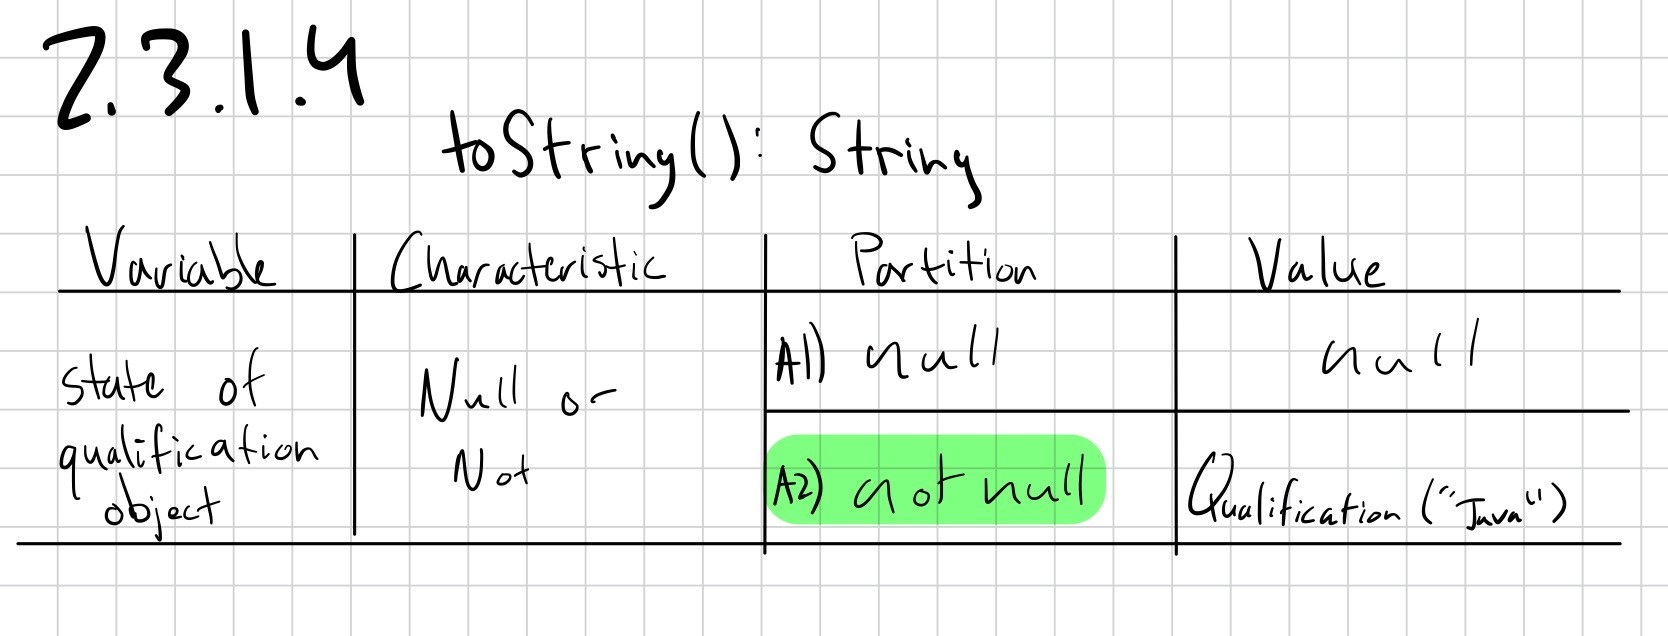 2.3.1.4
toString(): String
Variable Characteristic Partition Value
state of qualification object
Null or Not
A1) null
null
A2) not null
Qualification ("Java")